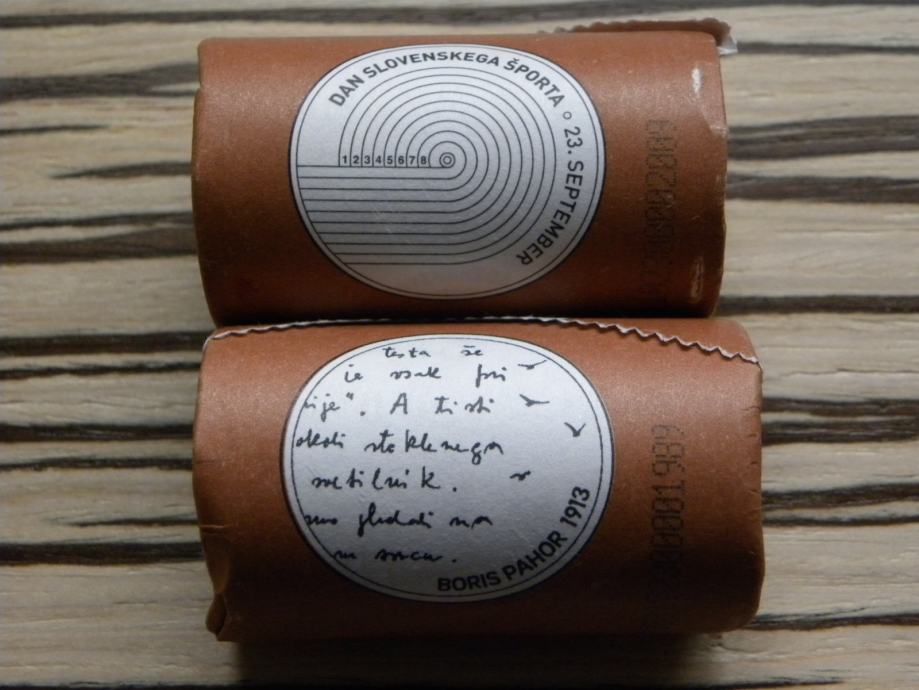 DAN SLOVENSKEGA ŠPORTA ○ 23. SEPTEMBER
1 2 3 4 5 6 7 8
testa še
je vsak pri
nije". A tisti
okoli steklenega
svetilnik.
smo gledali na
BORIS PAHOR 1913